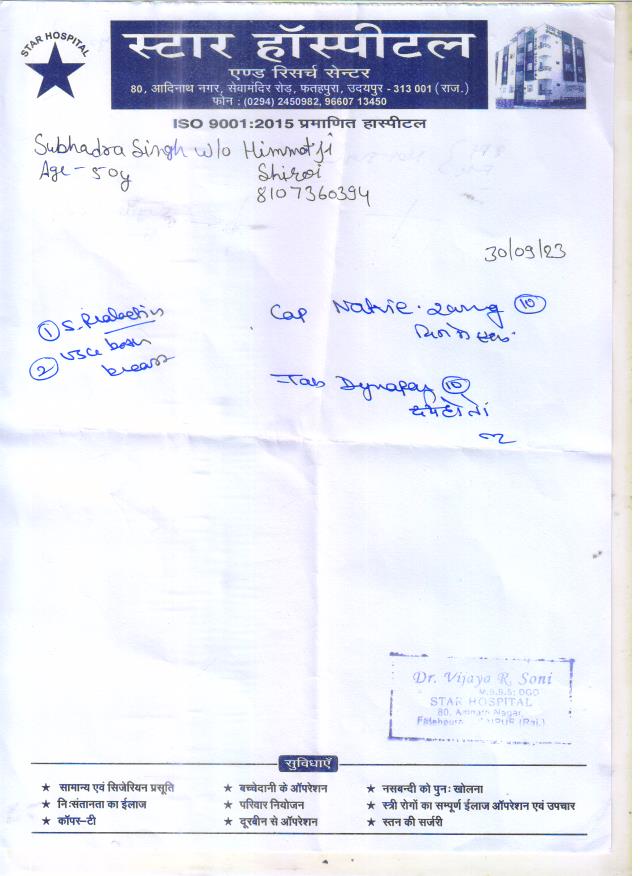 STAR HOSPITAL
स्टार हॉस्पीटल
एण्ड रिसर्च सेन्टर
80, आदिनाथ नगर, सेवामंदिर रोड़, फतहपुरा, उदयपुर - 313 001 (राज.)
फोन : (0294) 2450982, 96607 13450
ISO 9001:2015 प्रमाणित हास्पीटल
Subhadra Singh w/o Himmatji
Age - 50y
Shiroi
8107360394
30/09/23
① S. Prolactin
② both breast
Cap 10
Tab Dynapar 10
दर्द हो तो
Dr. Vijaya R. Soni
M.B.B.S; DGO
STAR HOSPITAL
80, Nagar,
(Raj.)
सुविधाएँ
★ सामान्य एवं सिजेरियन प्रसूति
★ बच्चेदानी के ऑपरेशन
★ नसबन्दी को पुनः खोलना
★ निःसंतानता का ईलाज
★ परिवार नियोजन
★ स्त्री रोगों का सम्पूर्ण ईलाज ऑपरेशन एवं उपचार
★ कॉपर-टी
★ दूरबीन से ऑपरेशन
★ स्तन की सर्जरी